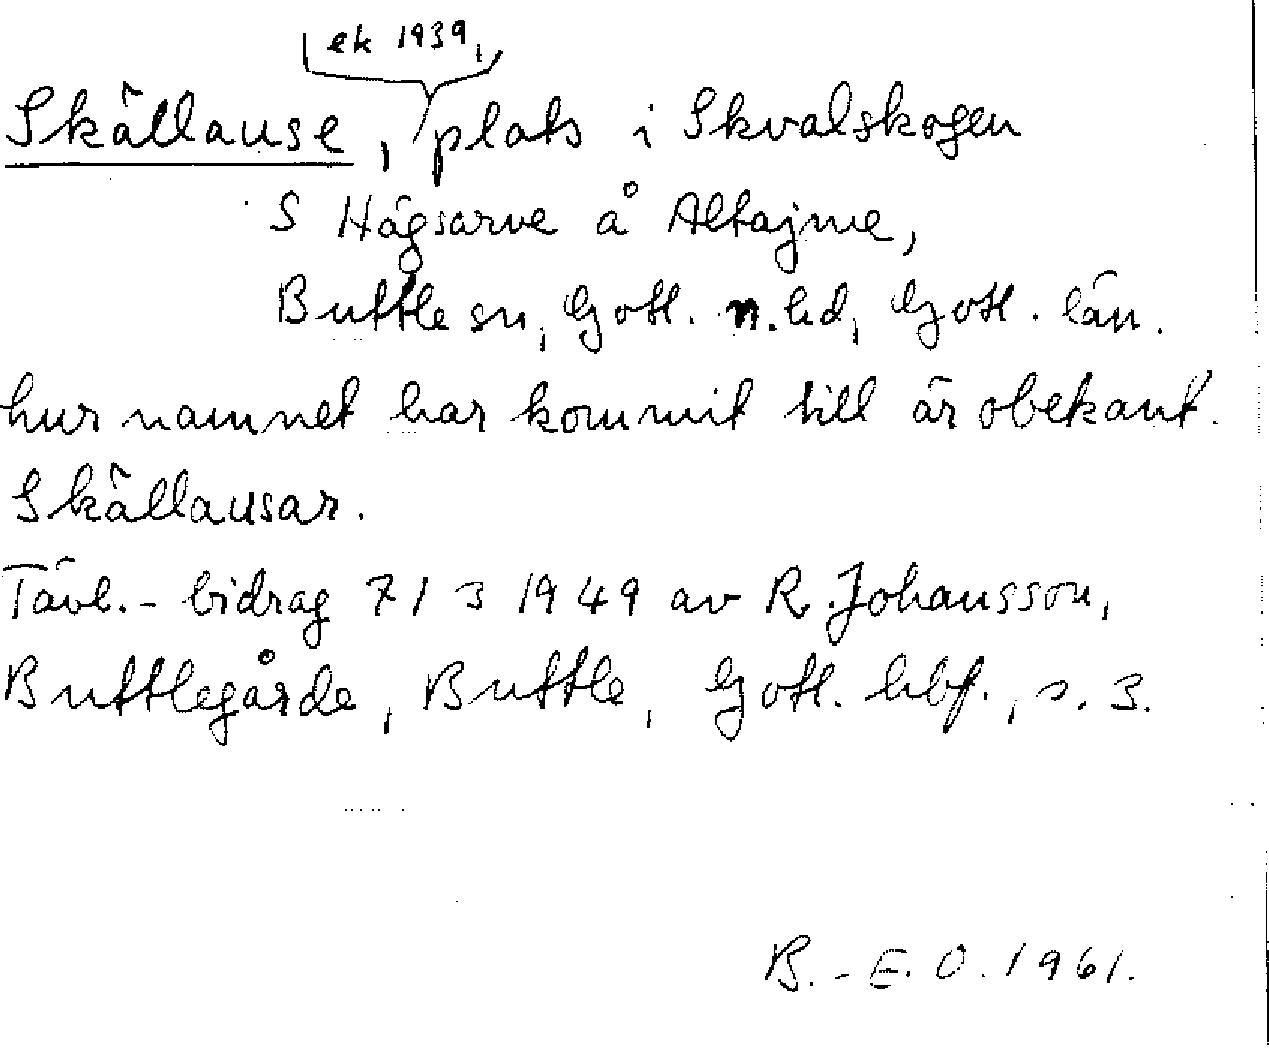 ek 1939,
Skällause, plats i Skvalskogen
S Hägsarve å Altajme,
Buttle sn, Gotl. n. hd, Gotl. län.
hur namnet har kommit till är obekant.
Skällausar.
Tävl.- bidrag 7/3 1949 av R. Johansson,
Buttlegårde, Buttle, Gotl. hbf., s. 3.
B.-E.O. 1961.